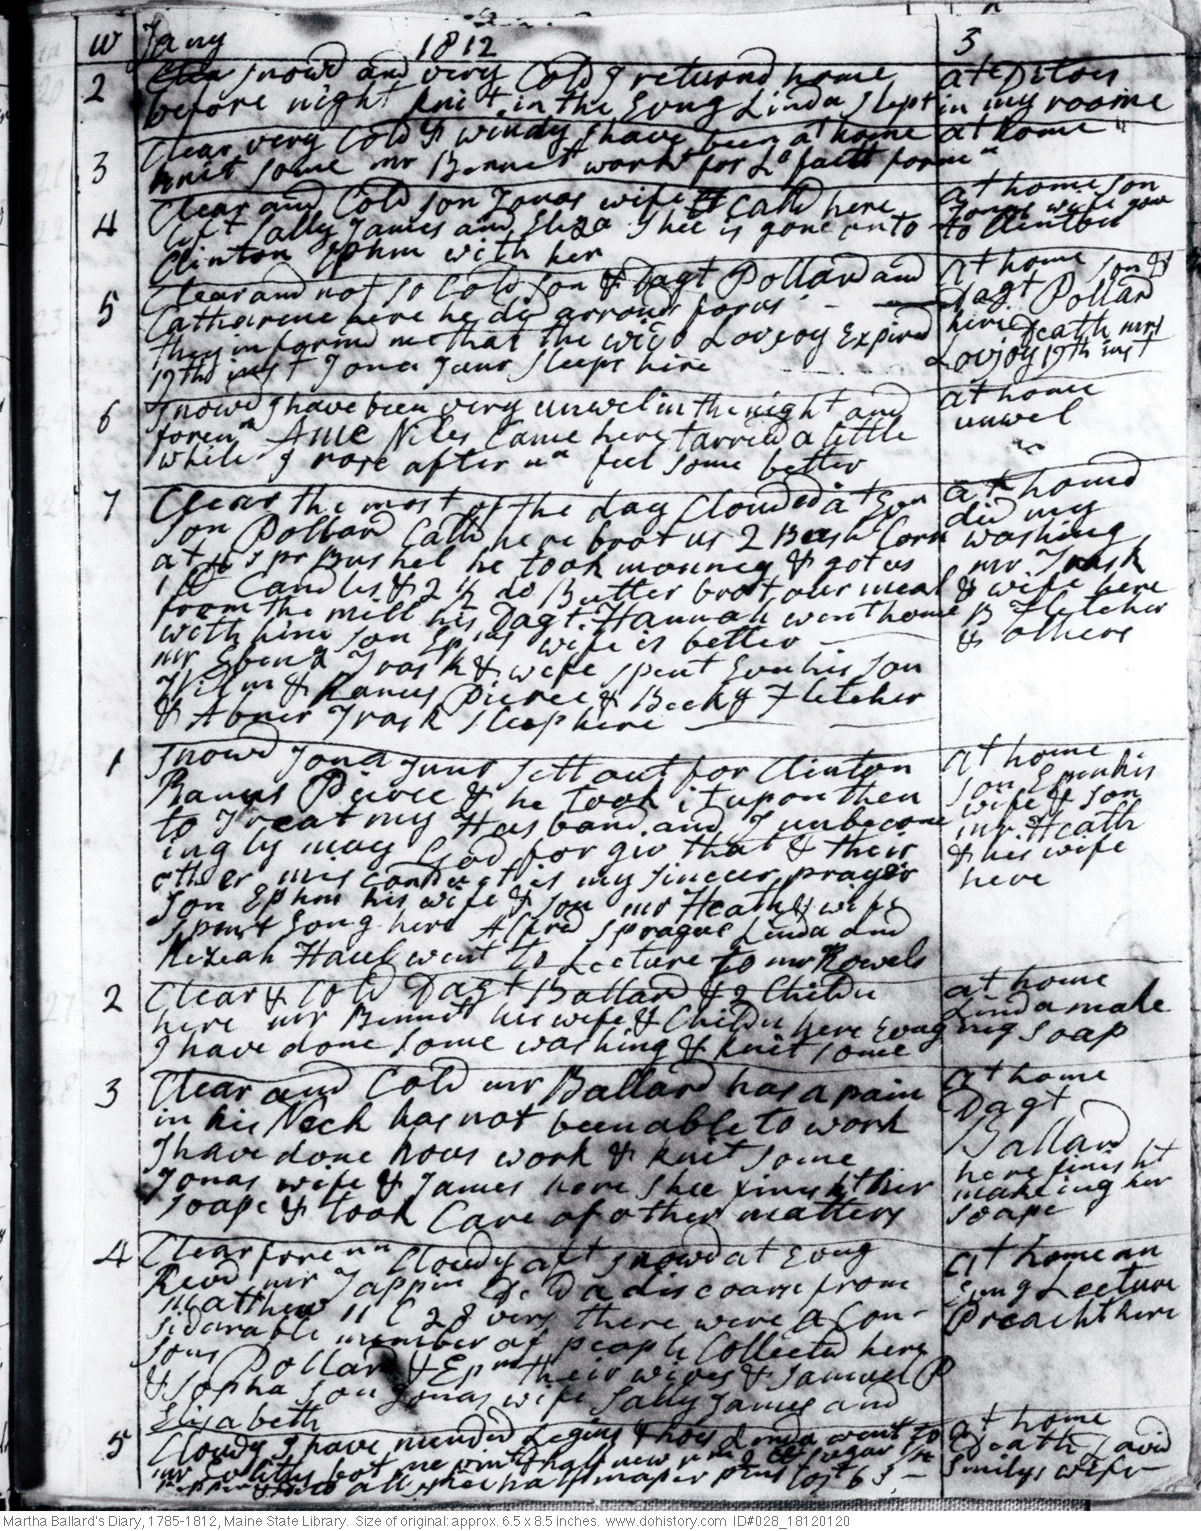 W Jany 1812 3
2 Clea snowd and very Cold I returnd home
before night knit in the Evng Linda slept in my roome
at Ditos
3 Clear very Cold & windy I have been at home
knit some mr Bennet workt for Ls faitt foren n
at home
4 Clear and Cold son Jonas wife Calld here
left Sally James and Eliza Shee is gone onto
Clinton Ephm with her
at home son
Jonas wife gon
to Clinton
5 Clear and not so Cold son & Dagt Pollard and
Catharine here he did arrond for us
they informd me that the wido Lovejoy Expired
17th inst Jona Junr sleeps here
at home son &
Dagt Pollard
here Death mrs
Lovjoy 17th inst
6 Snowd I have been very unwel in the night and
foren n Amie Niles Came here tarried a little
while I rose after nn feel some better
at home
unwel
7 Clear the most of the day Clouded at Evn
son Pollard Calld here brot us 2 Bush Corn
at spr Bushel he took monney & got us
1 lb Candles & 2 ½ do Butter brot our meal
from the mill his Dagt Hannah went home
with him son Epms wife is better
mr Ebenz Trask & wife spent Evn his son
Wilm & Rames Pierce & Becky Fletcher
& Abner Trask sleep here
at home
did my
washing
mr Trask
& wife here
B Fletcher
& others
1 Snowd Jona Junr sett out for Clinton
Rames Peirce & he took it upon them
to Treat my Husband and I unbecome
ingly may God forgiv that & their
other misconduct is my sincere prayer
son Ephm his wife & son mr Heath & wife
spent Evng here Alfred Sprague Linda and
Keziah Hasel went to Lecture to mr Rowels
at home
son Epm his
wife & son
mr Heath
& his wife
here
2 Clear & Cold Dagt Ballard & 2 Childn
here mr Bennet his wife & Childn here Evng
I have done some washing & knit some
at home
Linda made
my soap
3 Clear and Cold mr Ballard has a pain
in his Neck has not been able to work
I have done hous work & knit some
Jonas wife & James here shee finisht her
soape & took Care of other matters
at home
Dagt
Ballard
here finisht
makeing her
soape
4 Clear foren nn Cloudy aft snowd at Evng
Revd mr Tappin Dld a discoars from
Matthew 11 C 28 vers there were a Con-
siderable number of people Collected here
sons Pollard & Epm their wives & Samuel P
& Sopha son Jonas wife Sally James and
Elizabeth
at home an
Evng Lecture
Preacht here
5 Cloudy I have mended Legins & hose Linda went to
at home
Death David
Smilys wife